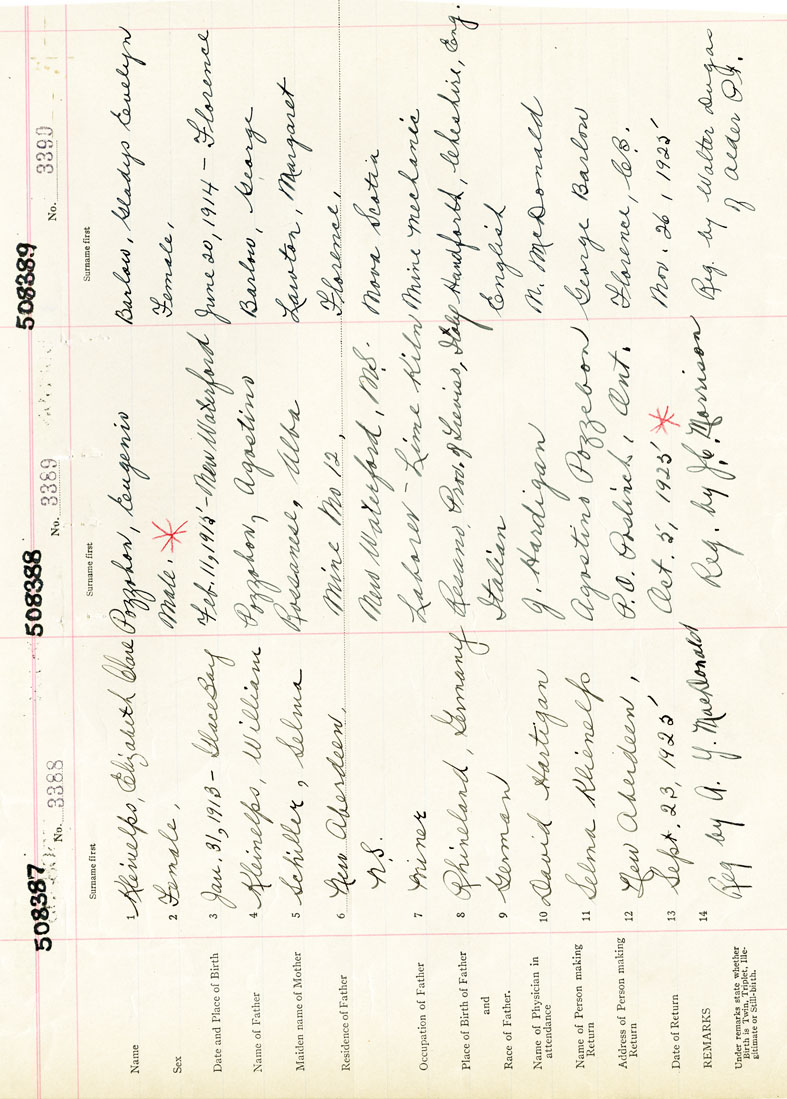 508387 508388 508389
No. 3388 No. 3389 No. 3390
Surname first Surname first Surname first
Name 1 Kleinelps, Elizabeth Clare Pozzobon, Eugenio Barlow, Gladys Evelyn
Sex 2 Female, Male. Female,
Date and Place of Birth 3 Jan. 31, 1913 - Glace Bay Feb. 11, 1915 - New Waterford June 20, 1914 - Florence
Name of Father 4 Kleinelps, William Pozzobon, Agostino Barlow, George
Maiden name of Mother 5 Schiller, Selma Rossanese, Alba Lawton, Margaret
Residence of Father 6 New Aberdeen, Mine No 12, Florence,
N.S. New Waterford, N.S. Nova Scotia
Occupation of Father 7 Miner Laborer - Lime Kiln Mine Mechanic
Place of Birth of Father 8 Rhineland, Germany Resano, Prov. of Treviso, Italy Handforth, Cheshire, Eng.
and
Race of Father. 9 German Italian English
Name of Physician in attendance 10 David Hartigan J. Hardigan M. McDonald
Name of Person making Return 11 Selma Klienelps Agostino Pozzebon George Barlow
Address of Person making Return 12 New Aberdeen, P.O. Puslinch, Ont. Florence, C.B.
Date of Return 13 Sept. 23, 1925 Oct. 5, 1925 Nov. 26, 1925
REMARKS 14 Reg by A. Y. MacDonald Reg. by J.C. Morrison Reg. by Walter Dugas
of Alder Pt.
Under remarks state whether
Birth is Twin, Triplet, Ille-
gitimate or Still-birth.